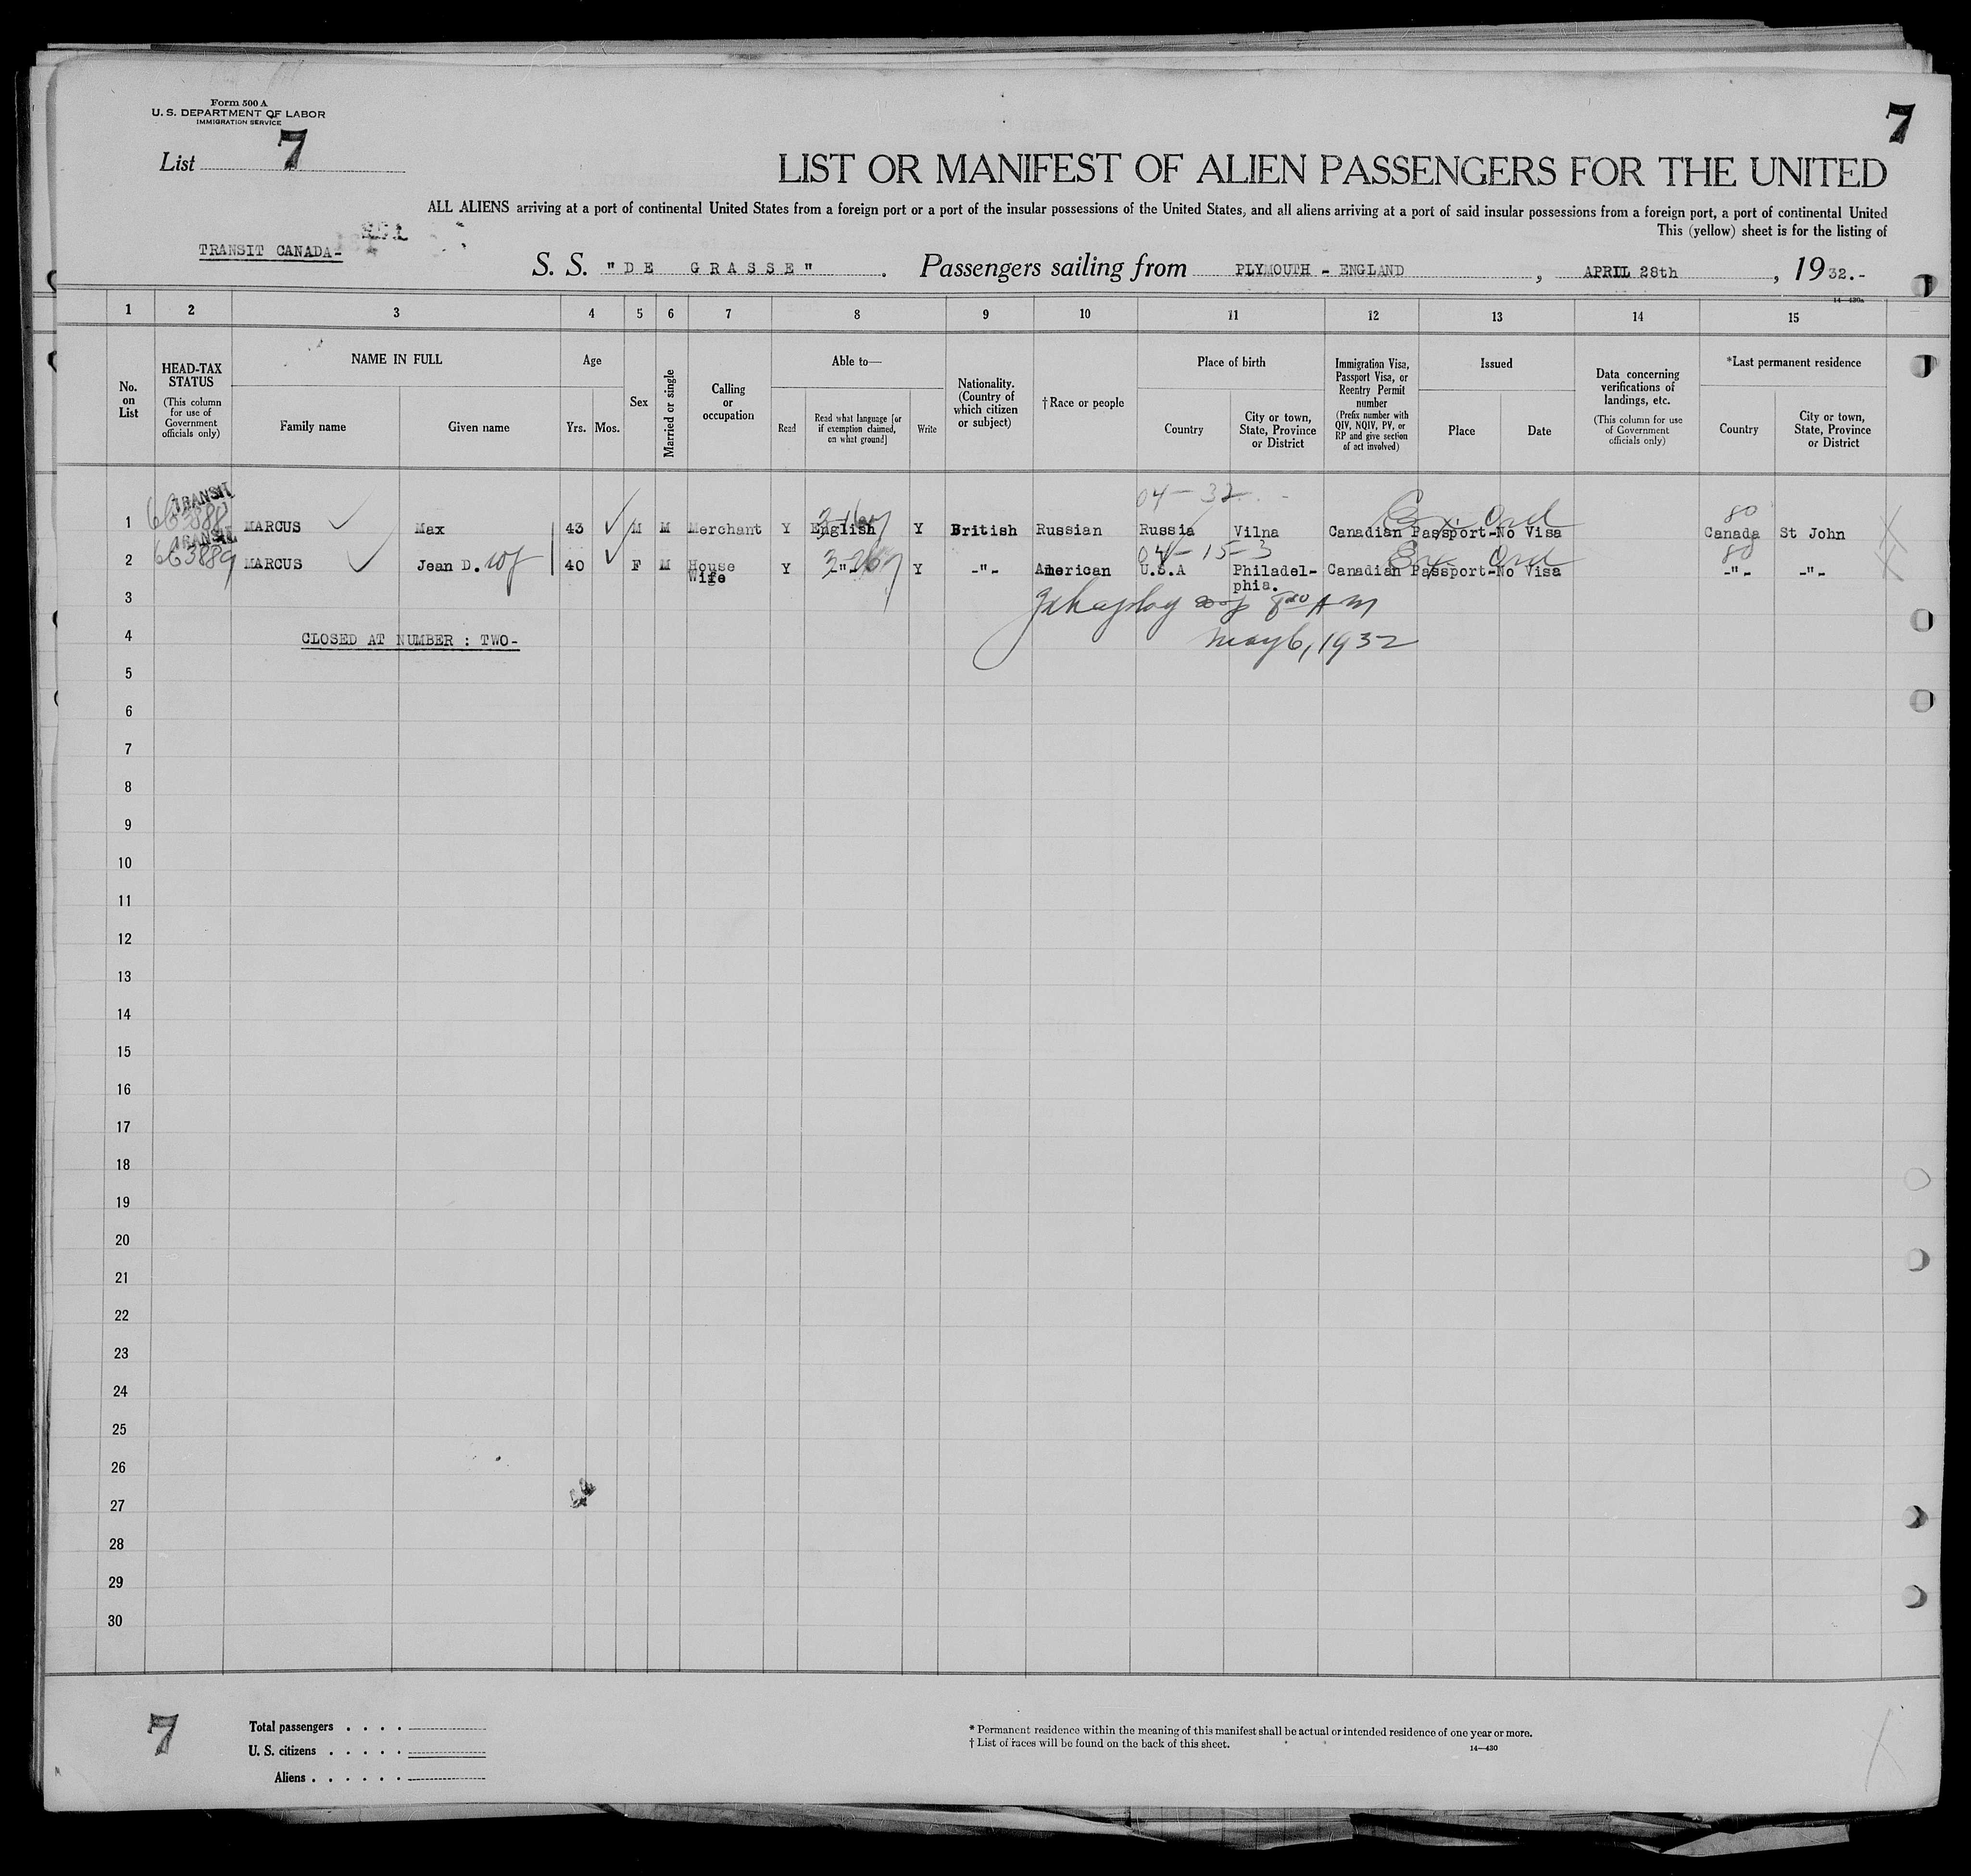 Form 500 A
U. S. DEPARTMENT OF LABOR
IMMIGRATION SERVICE
7
List 7
LIST OR MANIFEST OF ALIEN PASSENGERS FOR THE UNITED
ALL ALIENS arriving at a port of continental United States from a foreign port or a port of the insular possessions of the United States, and all aliens arriving at a port of said insular possessions from a foreign port, a port of continental United
This (yellow) sheet is for the listing of
TRANSIT CANADA-
S. S. "DE GRASSE". Passengers sailing from PLYMOUTH - ENGLAND, APRIL 28th, 1932.-
14-430a
1 2 3 4 5 6 7 8 9 10 11 12 13 14 15
No. on List
HEAD-TAX STATUS
(This column for use of Government officials only)
NAME IN FULL
Family name Given name
Age
Yrs. Mos.
Sex
Married or single
Calling or occupation
Able to—
Read
Read what language [or if exemption claimed, on what ground]
Write
Nationality. (Country of which citizen or subject)
†Race or people
Place of birth
Country
City or town, State, Province or District
Immigration Visa, Passport Visa, or Reentry Permit number
(Prefix number with QIV, NQIV, PV, or RP and give section of act involved)
Issued
Place Date
Data concerning verifications of landings, etc.
(This column for use of Government officials only)
*Last permanent residence
Country
City or town, State, Province or District
TRANSIT 04-32 80
1 663888 MARCUS Max 43 M M Merchant Y English Y British Russian Russia Vilna Canadian Passport-No Visa Canada St John
TRANSIT 04-15-3 80
2 663889 MARCUS Jean D. wf 40 F M House Wife Y -"- Y -"- American U.S.A Philadelphia. Canadian Passport-No Visa -"- -"-
3 8 00 AM
4 CLOSED AT NUMBER : TWO- May 6, 1932
5
6
7
8
9
10
11
12
13
14
15
16
17
18
19
20
21
22
23
24
25
26
27
28
29
30
7
Total passengers . . . .
U. S. citizens . . . . .
Aliens . . . . . .
* Permanent residence within the meaning of this manifest shall be actual or intended residence of one year or more.
† List of races will be found on the back of this sheet.
14-430